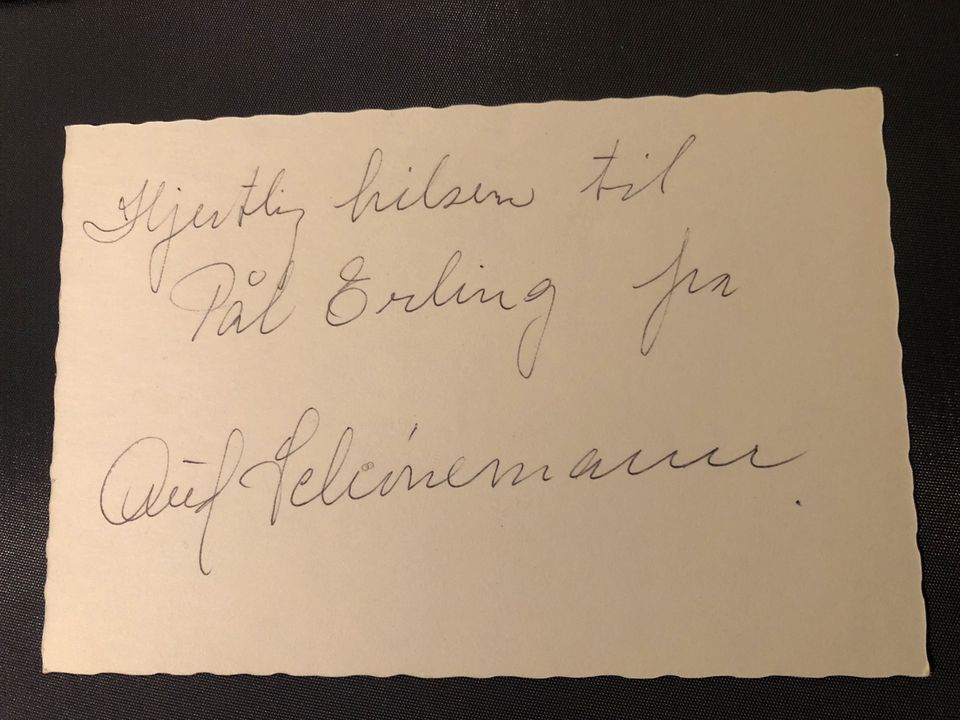 Hjertlig hilsen til
Pål Erling fra
Aud Schönemann.